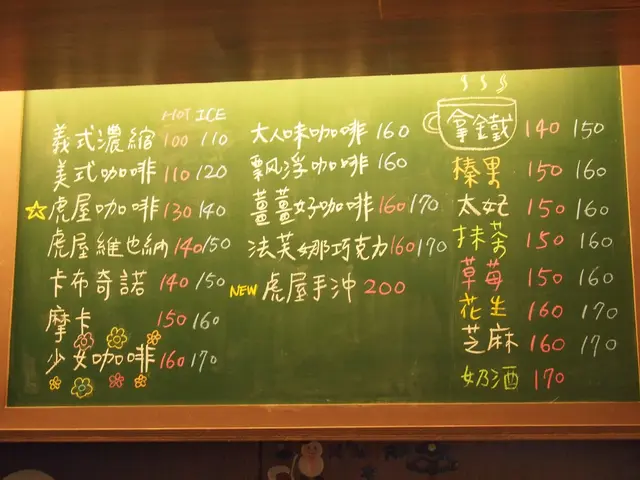 HOT ICE
義式濃縮 100 110
美式咖啡 110/120
☆虎屋咖啡 130/140
虎屋維也納 140/150
卡布奇諾 140/150
摩卡 150 160
少女咖啡 160 170
大人味咖啡 160
飄浮咖啡 160
薑薑好咖啡 160/170
法芙娜巧克力 160/170
NEW 虎屋手沖 200
拿鐵 140 150
榛果 150 160
太妃 150 160
抹茶 150 160
草莓 150 160
花生 160 170
芝麻 160 170
奶酒 170